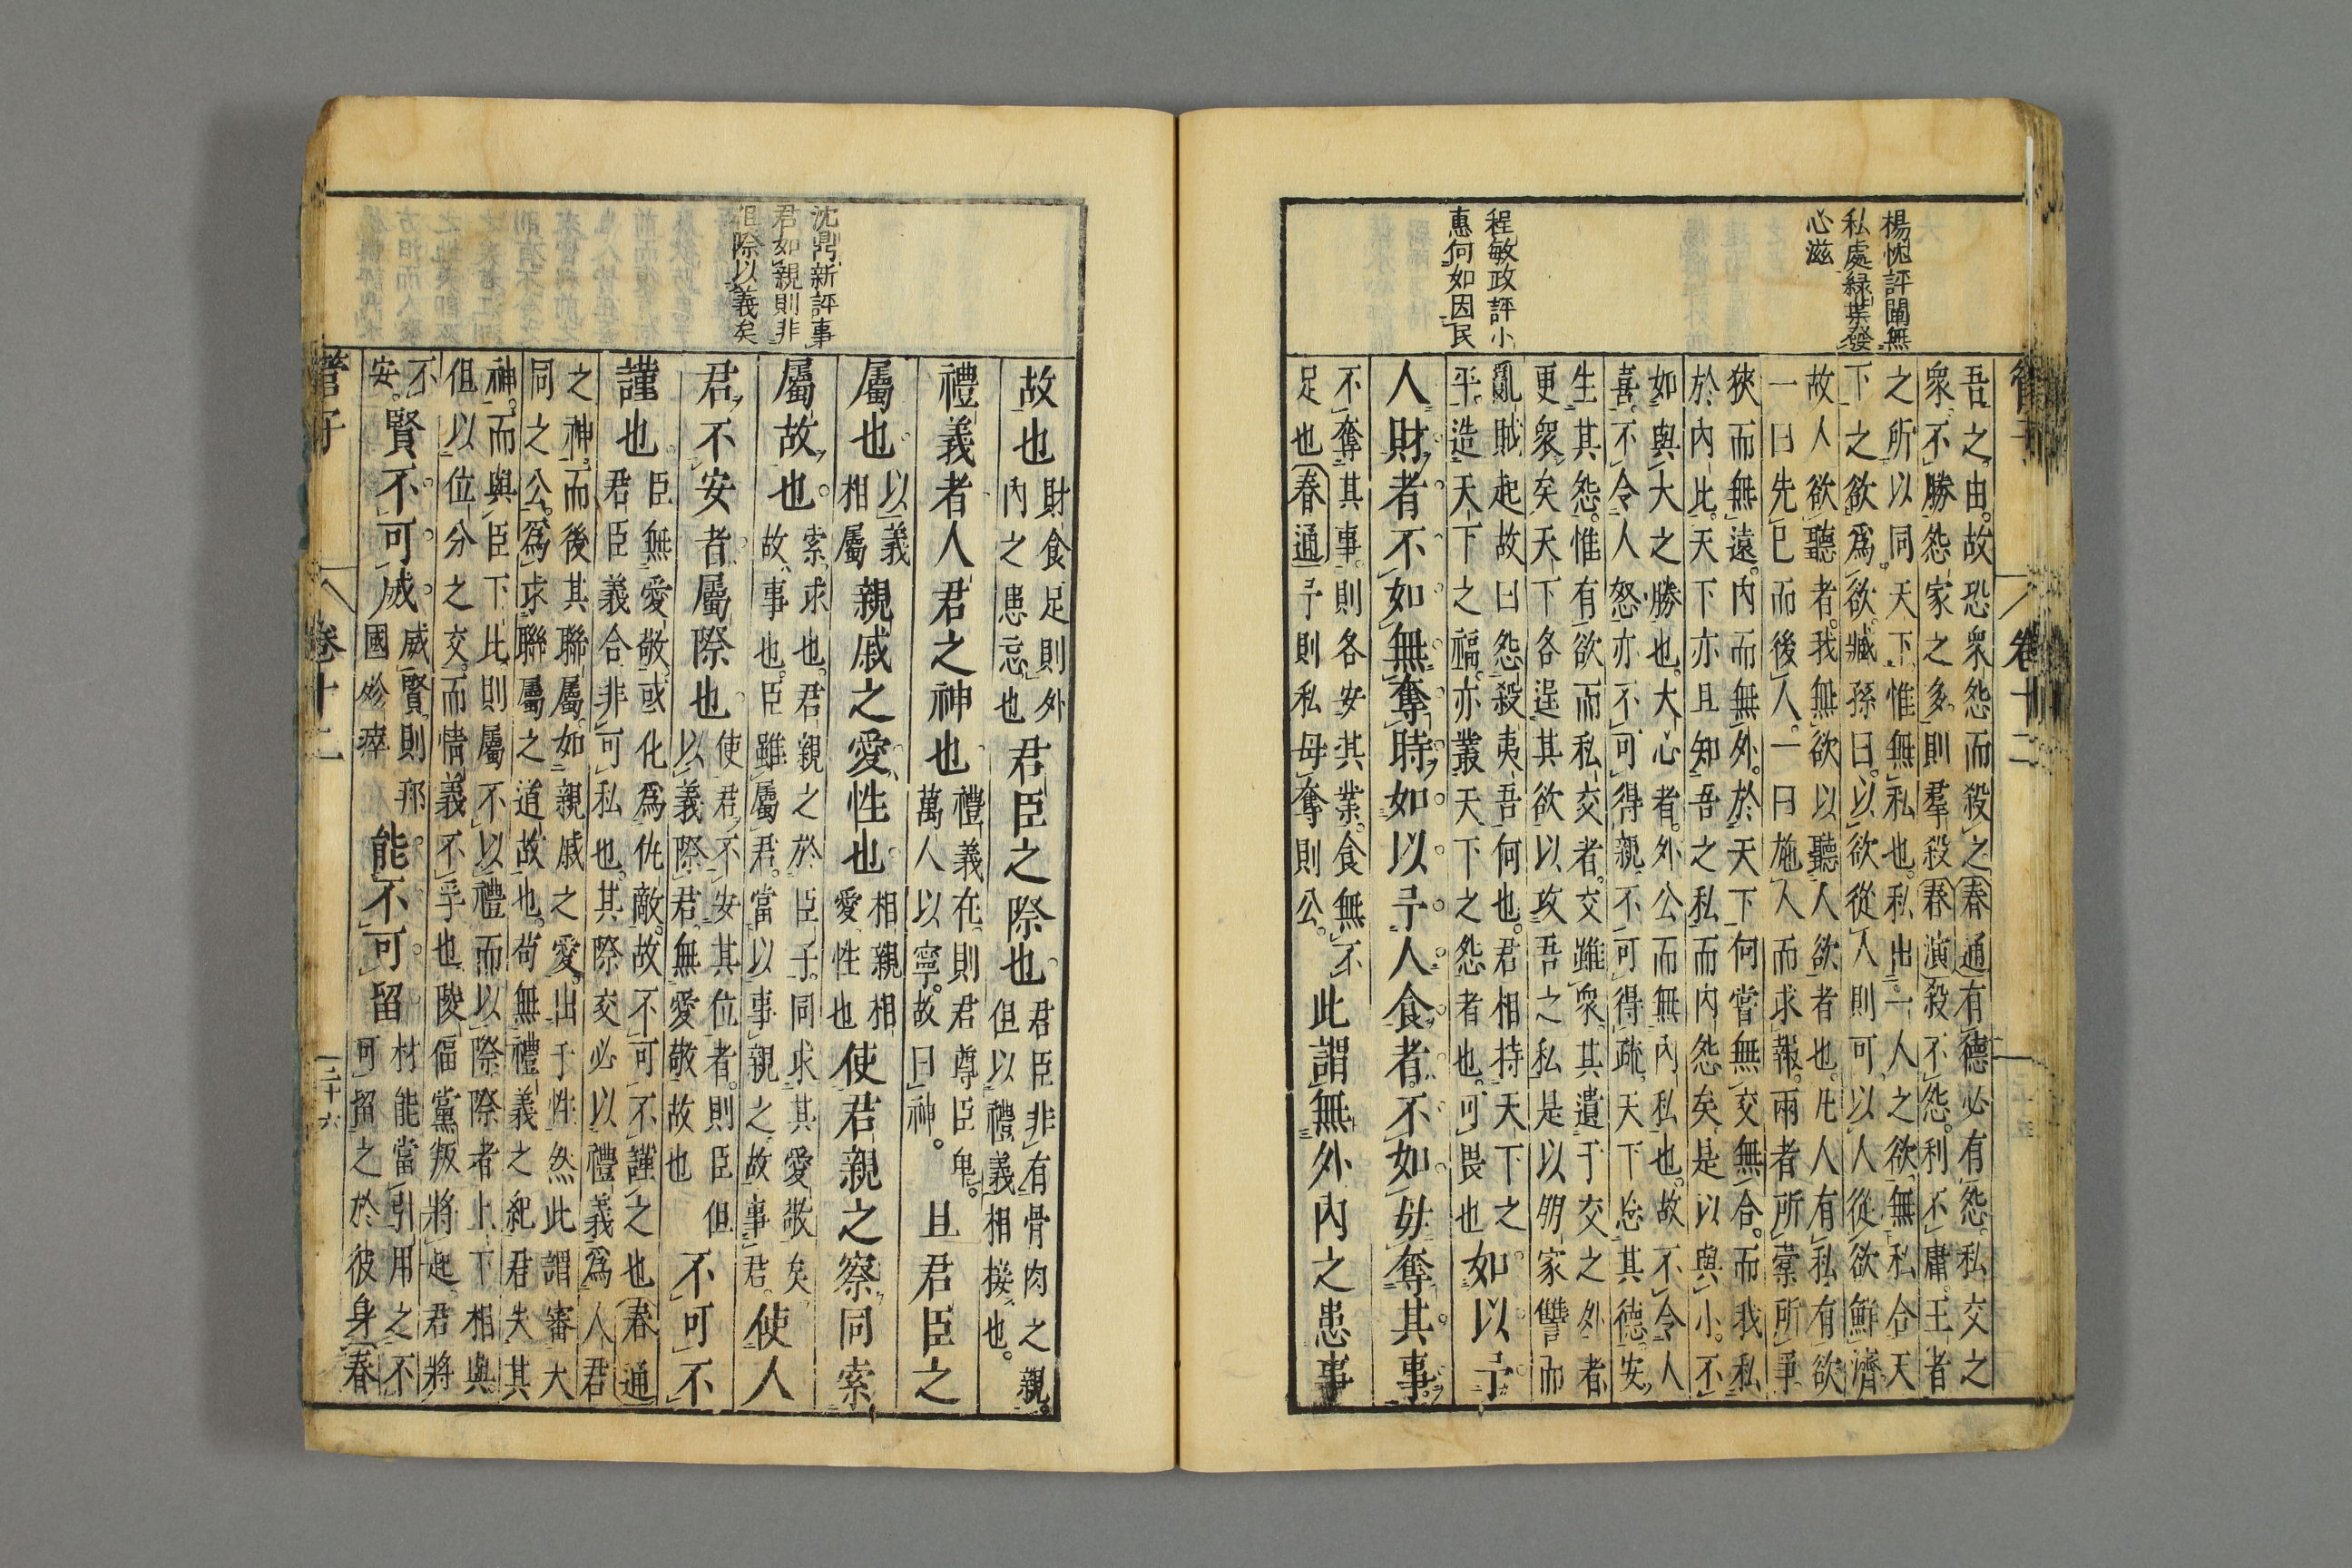 楊忱評闡無
私處緑葉發
心滋
程敏政評小
惠何如因民
吾之由故恐衆怨而殺之春通有德必有怨私交之
衆不勝怨家之多則羣殺春演殺不怨利不庸王者
之所以同天下惟無私也私出一人之欲無私合天
下之欲爲欲臧孫曰以欲從人則可以人從欲鮮濟
故人欲聽者我無欲以聽人欲者也凡人有私有欲
一曰先已而後人一曰施人而求報兩者所棠所爭
狹而無遠内而無外於天下何嘗無交無合而我私
於内此天下亦且知吾之私而内怨矣是以與小不
如與大之勝也大心者外公而無内私也故不令人
喜不令人怒亦不可得親不可得疏天下忘其德安
生其怨惟有欲而私交者交雖衆其遺于交之外者
更衆矣天下各逞其欲以攻吾之私是以明家讐而
亂賊起故曰怨殺夷吾何也君相持天下之
平造天下之福亦叢天下之怨者也可畏也
如以予
人財者不如無奪時如以予人食者不如毋奪其事
不奪其事則各安其業食無不
足也春通予則私毋奪則公
此謂無外内之患事
管子
卷十二
沈鼎新評事
君如親則非
徂際以義矣
故也
財食足則外
内之患忘也
君臣之際也
君臣非有骨肉之親
但以禮義相接也
禮義者人君之神也
禮義在則君尊臣卑
萬人以寧故曰神
且君臣之
屬也
以義
相屬
親戚之愛性也
相親相
愛性也
使君親之察同索
屬故也
索求也君親之於臣子同求其愛敬矣
故事也臣雖屬君當以事親之故事君
使人
君不安者屬際也
使君不安其位者則臣但
以義際君無愛敬故也
不可不
謹也
臣無愛敬或化爲仇敵故不可不謹之也春通
君臣義合非可私也其際交必以禮義爲人君
之神而後其聯屬如親戚之愛出于性然此謂審大
同之公爲求聯屬之道故也苟無禮義之紀君失其
神而與臣下比則屬不以禮而以際際者上下相與
但以位分之交而情義不孚也陵偪黨叛將起君將
不
安
賢不可威
威賢則邦
國殄瘁
能不可留
材能當引用之不
可留之於彼身春
管子
卷十二
三十六